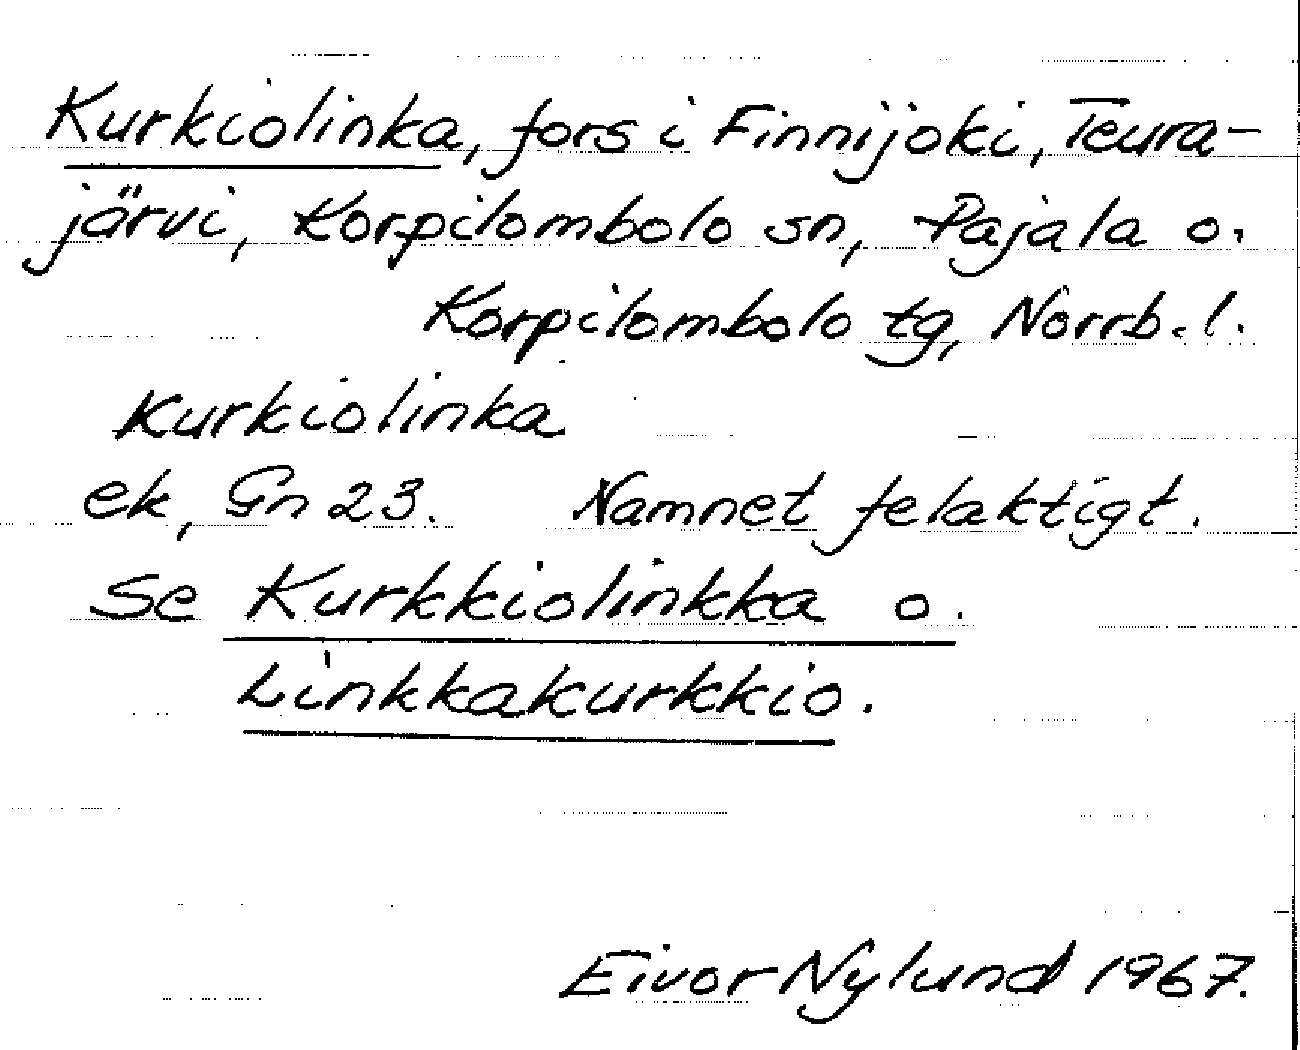 Kurkiolinka, fors i Finnijoki, Teura-
järvi, Korpilombolo sn, Pajala o.
Korpilombolo tg, Norrb. l.
Kurkiolinka
ek, Gn 23. Namnet felaktigt.
Se Kurkkiolinkka o.
Linkkakurkkio.
Eivor Nylund 1967.